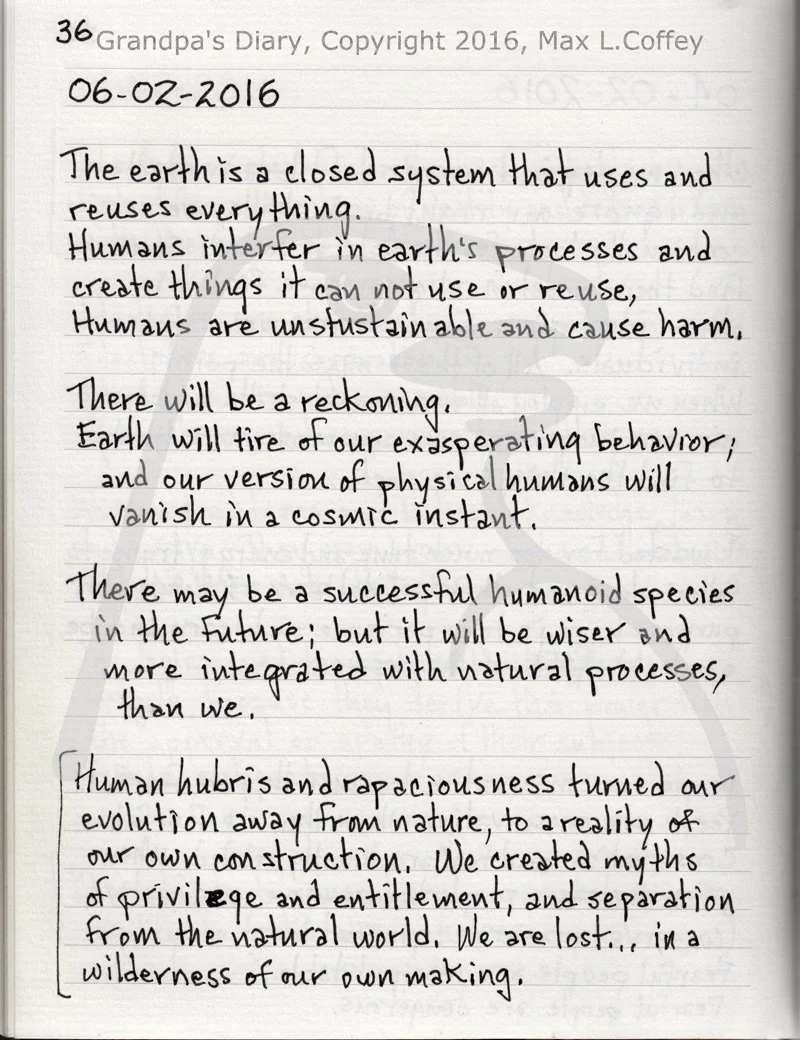 36 Grandpa's Diary, Copyright 2016, Max L.Coffey
06-02-2016
The earth is a closed system that uses and
reuses everything.
Humans interfer in earth's processes and
create things it can not use or reuse,
Humans are unstustainable and cause harm.
There will be a reckoning.
Earth will tire of our exasperating behavior;
and our version of physical humans will
vanish in a cosmic instant.
There may be a successful humanoid species
in the future; but it will be wiser and
more integrated with natural processes,
than we.
Human hubris and rapaciousness turned our
evolution away from nature, to a reality of
our own construction. We created myths
of privilege and entitlement, and separation
from the natural world. We are lost... in a
wilderness of our own making.